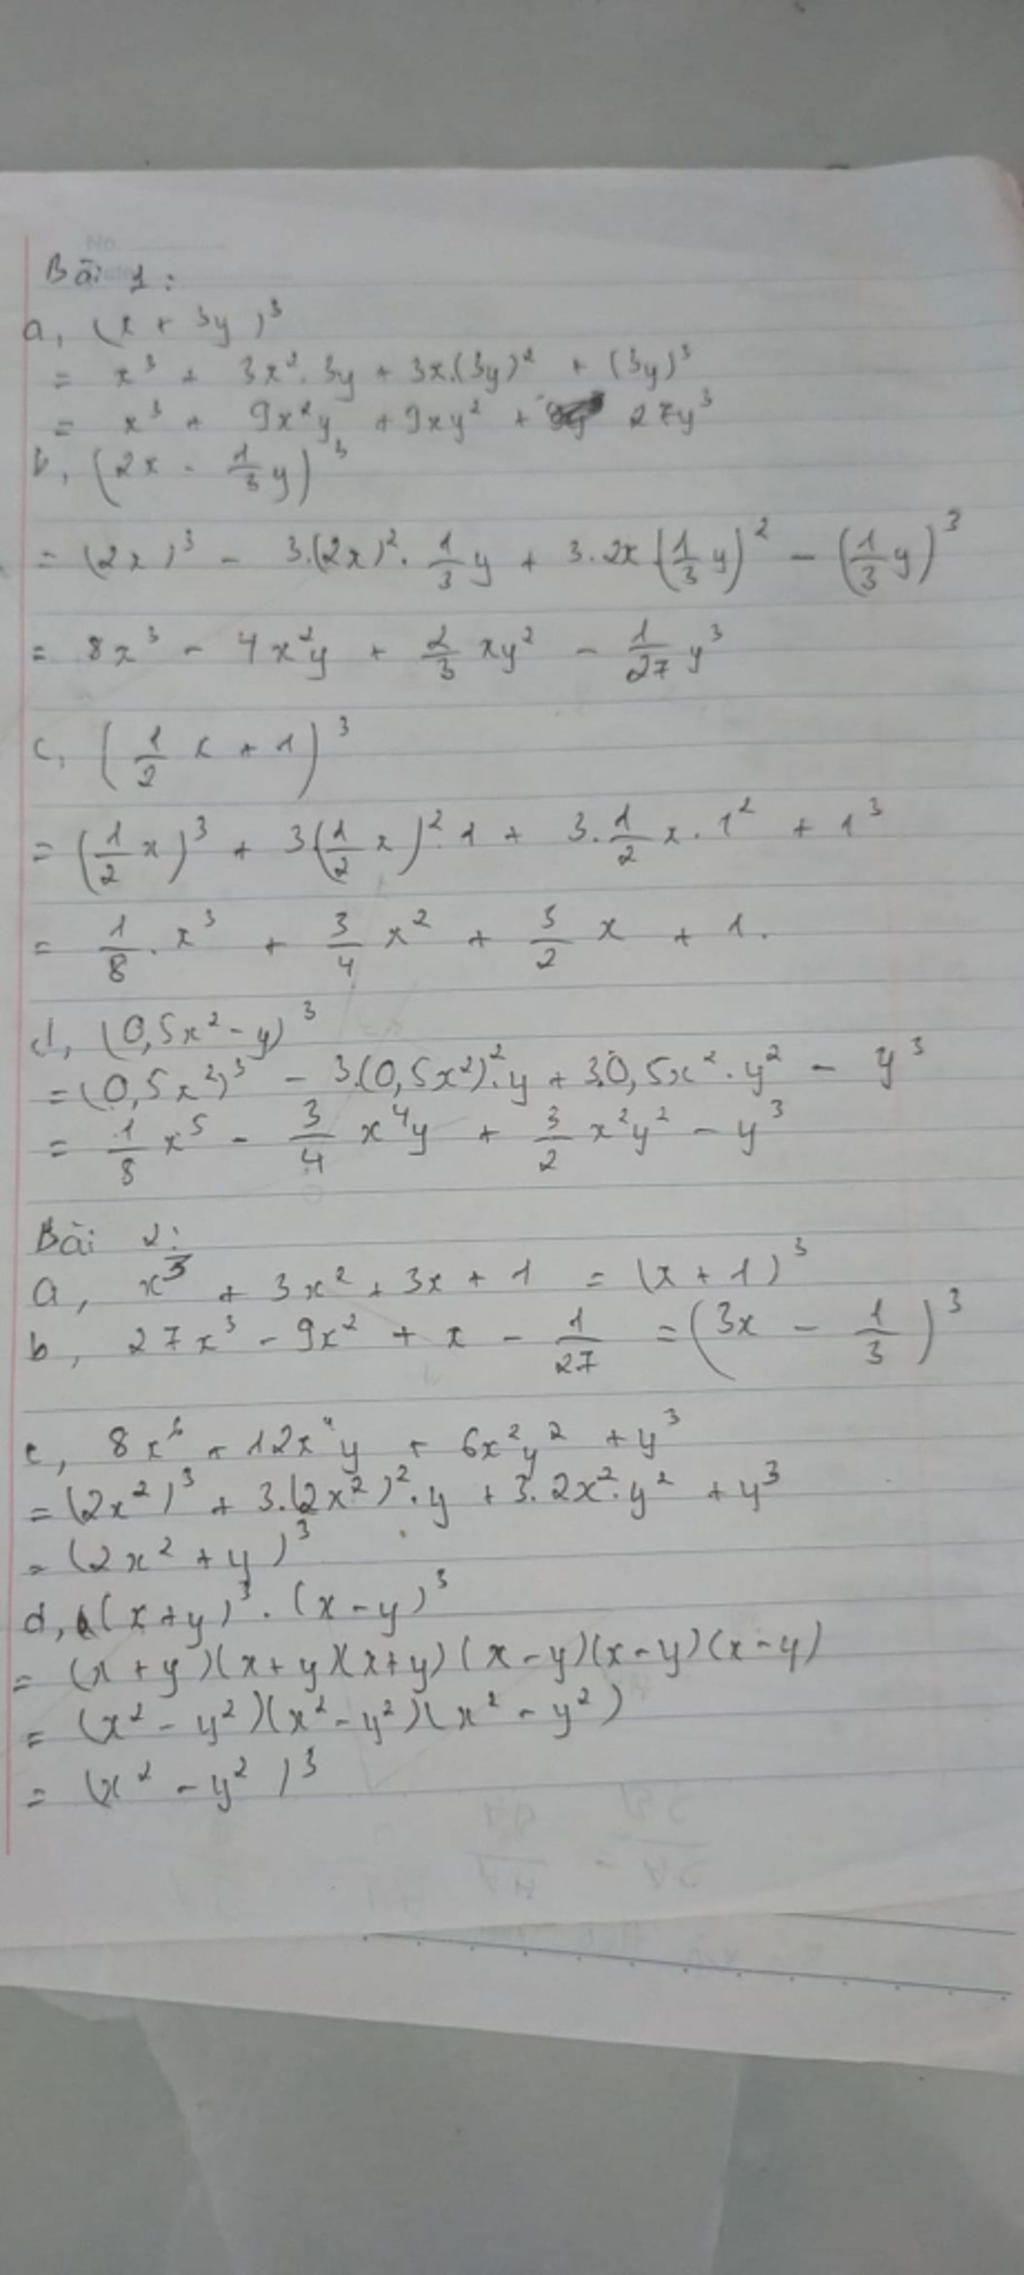 Bài 1:
a, (x + 3y)³
= x³ + 3x². 3y + 3x.(3y)² + (3y)³
= x³ + 9x²y + 9xy² + 27y³
b, (2x - 1/3 y)³
= (2x)³ - 3.(2x)². 1/3 y + 3.2x.(1/3 y)² - (1/3 y)³
= 8x³ - 4x²y + 2/3 xy² - 1/27 y³
c, (1/2 x + 1)³
= (1/2 x)³ + 3(1/2 x)².1 + 3.1/2 x.1² + 1³
= 1/8 . x³ + 3/4 x² + 3/2 x + 1.
d, (0,5x² - y)³
= (0,5x²)³ - 3.(0,5x²)².y + 3.0,5x².y² - y³
= 1/8 x⁵ - 3/4 x⁴y + 3/2 x²y² - y³
Bài 2:
a, x³ + 3x² + 3x + 1 = (x + 1)³
b, 27x³ - 9x² + x - 1/27 = (3x - 1/3)³
c, 8x⁶ + 12x⁴y + 6x²y² + y³
= (2x²)³ + 3.(2x²)².y + 3.2x².y² + y³
= (2x² + y)³
d, (x+y)³.(x-y)³
= (x+y)(x+y)(x+y)(x-y)(x-y)(x-y)
= (x² - y²)(x² - y²)(x² - y²)
= (x² - y²)³